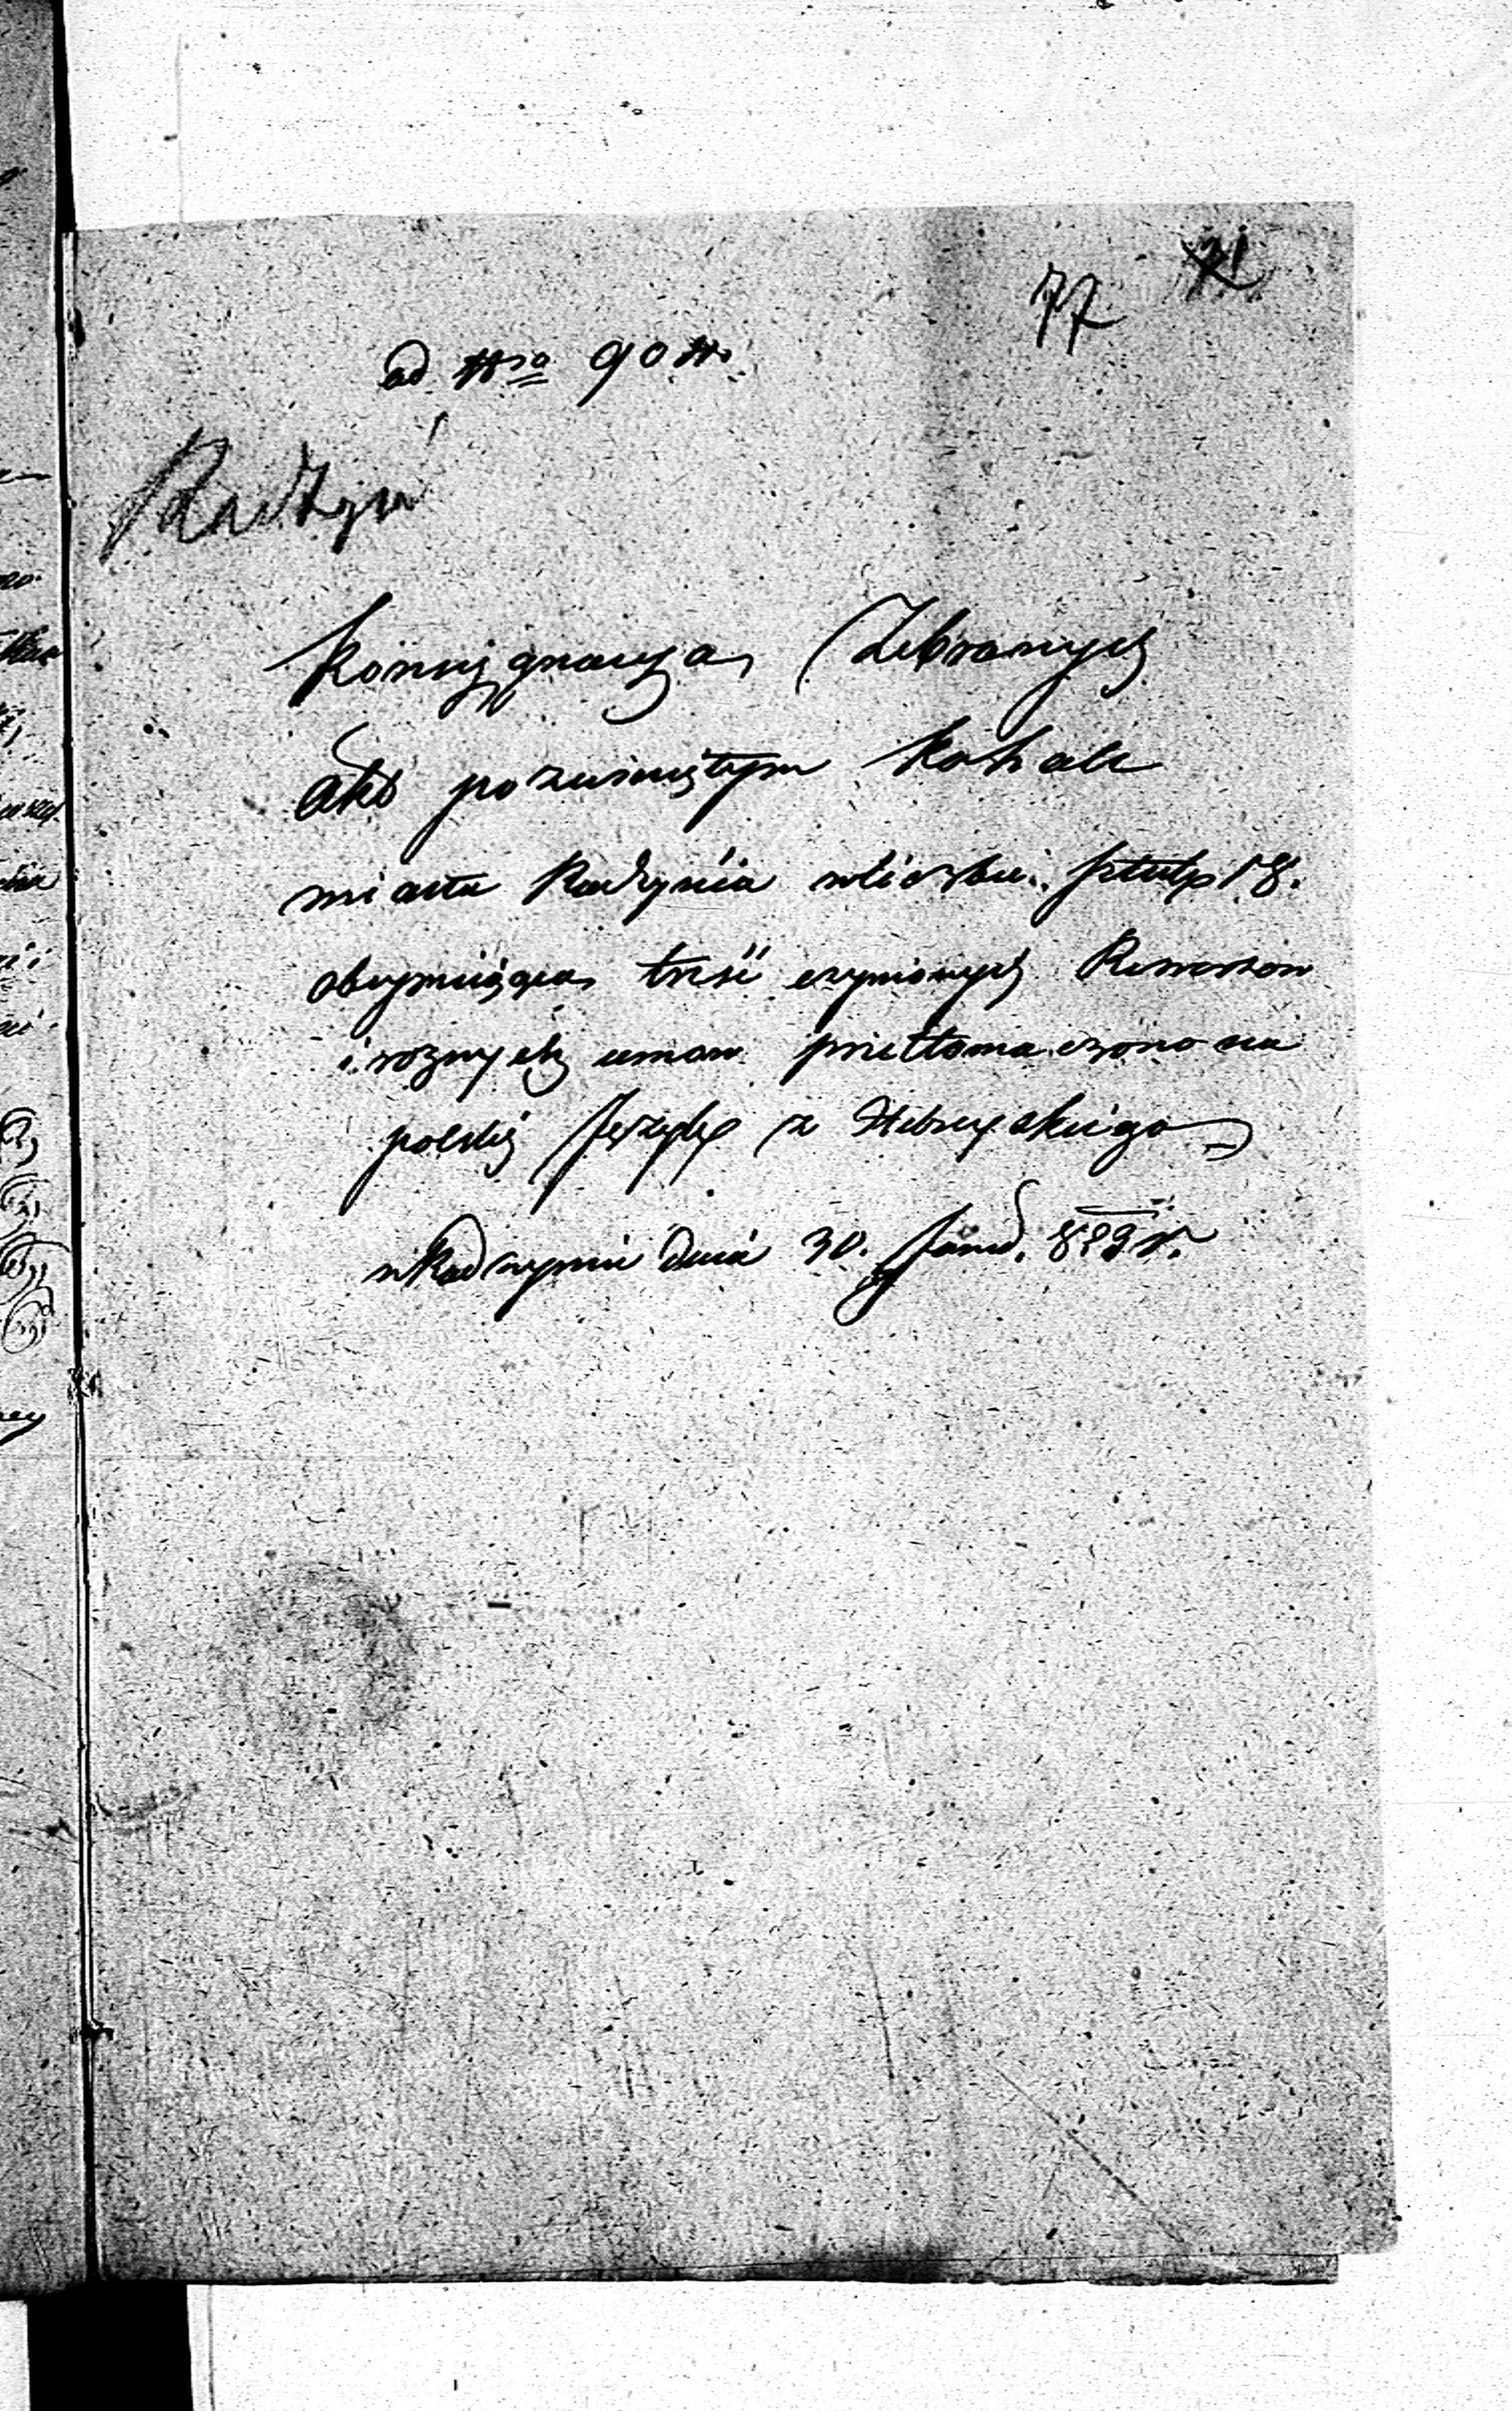 77
ad Nro 90
Radzyń
Konsygnacya Zebranych
Akt po zwiniętym Kahale
miasta Radzynia w liczbie sztuk 18.
obeymuiąca treść czynionych Rewersow
i roznych umow przetłomaczono na
polski Język z Hebrayskiego
w Radzyniu dnia 30.